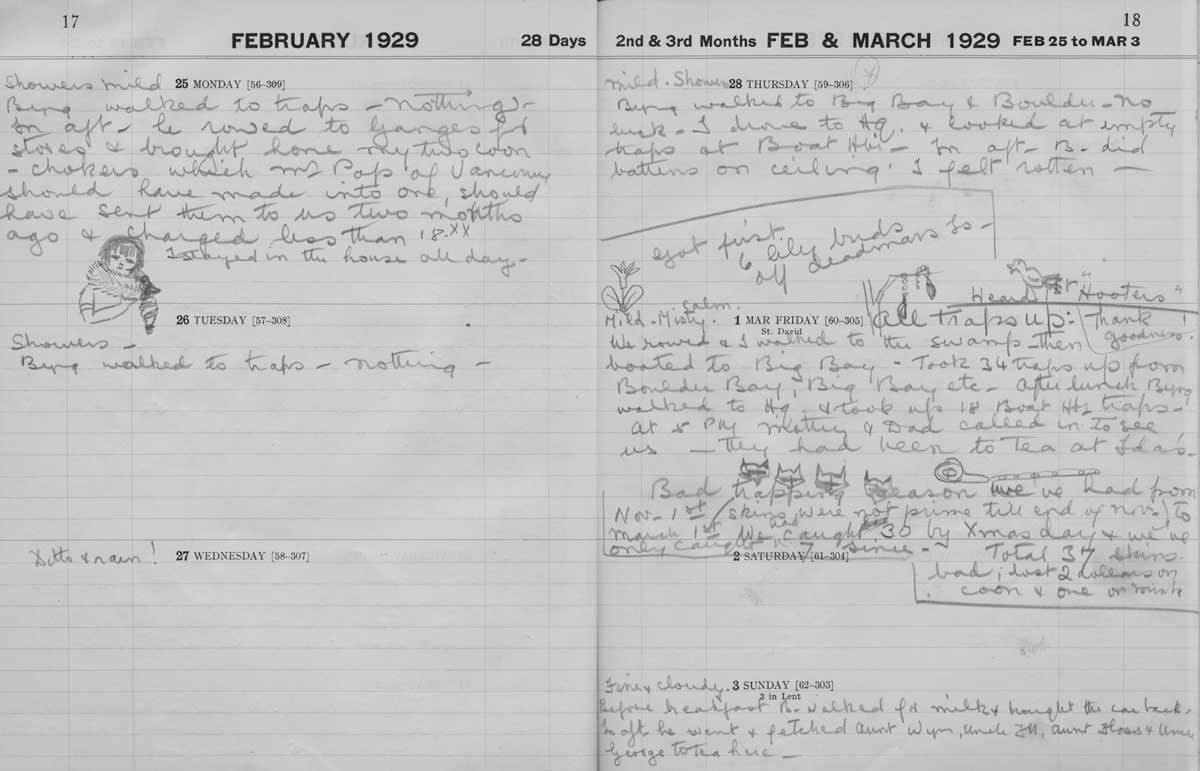 17
FEBRUARY 1929 28 Days
Showers mild 25 MONDAY [56–309]
Byng walked to traps – nothing –
In aft – he rowed to Ganges for
stores & brought home my two coon
– chokers which Mr Pop of Vancouver
should have made into one, should
have sent them to us two months
ago & charged less than 18.xx
I stayed in the house all day –
26 TUESDAY [57–308]
Showers –
Byng walked to traps – nothing –
Ditto & rain! 27 WEDNESDAY [58–307]
18
2nd & 3rd Months FEB & MARCH 1929 FEB 25 to MAR 3
Mild. Showers 28 THURSDAY [59–306]
Byng walked to Big Bay & Boulder – no
luck – I drove to Hq. & looked at empty
traps at Boat Hbr – In aft – B– did
battens on ceiling. I felt rotten —
Got first
6 lily buds
off Deadmans Is –
Heard 1st "Hooters"
calm.
Mild – Misty. 1 MAR FRIDAY [60–305] All traps up: Thank goodness!
St. David
We rowed & I walked to the swamp – then
boated to Big Bay – Took 34 traps up from
Boulder Bay, Big Bay etc – After lunch Byng
walked to Hq. & took up 18 Boat Hbr traps –
At 5 PM Mother & Dad called in to see
us – they had been to Tea at Ida's –
Bad trapping season we've had from
Nov. 1st (skins were not prime till end of Nov.) to
March 1st We had caught 30 by Xmas day & we've
only caught 7 since – Total 37 skins
2 SATURDAY [61–304]
bad; lost 2 dollars on
coon & one on mink
Fine & cloudy. 3 SUNDAY [62–303]
3 in Lent
Before breakfast B. walked for milk & brought the car back.
In aft he went & fetched Aunt Wyn, Uncle, Aunt & Uncle
George to tea here —